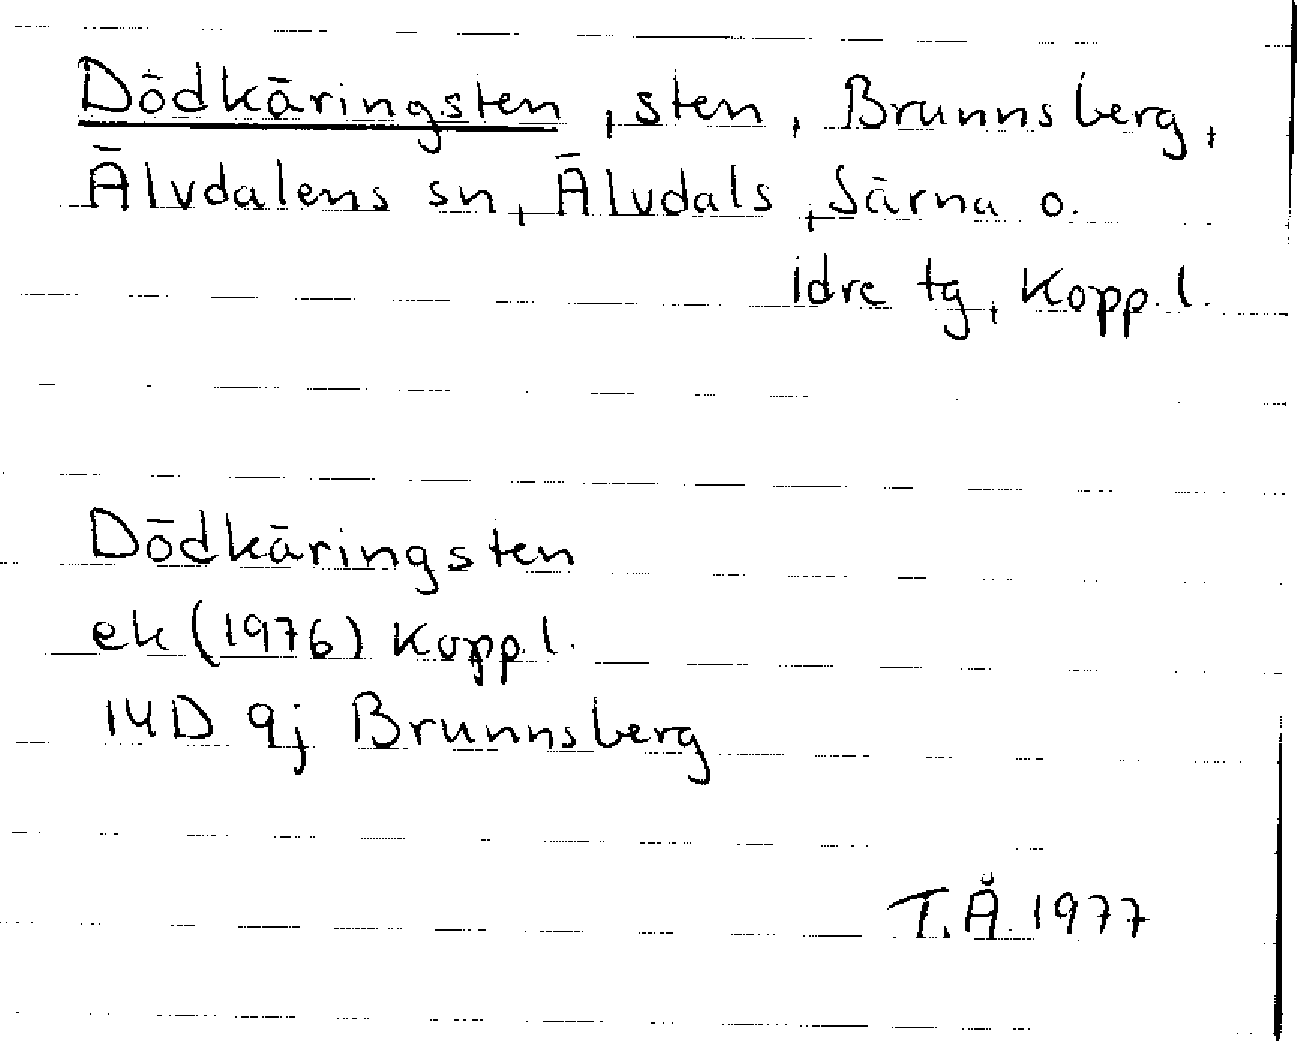 Dödkäringsten, sten, Brunnsberg,
Älvdalens sn, Älvdals, Särna o.
Idre tg, Kopp.l.
Dödkäringsten
ek (1976) Kopp.l.
14D 9j Brunnsberg
T.Å. 1977